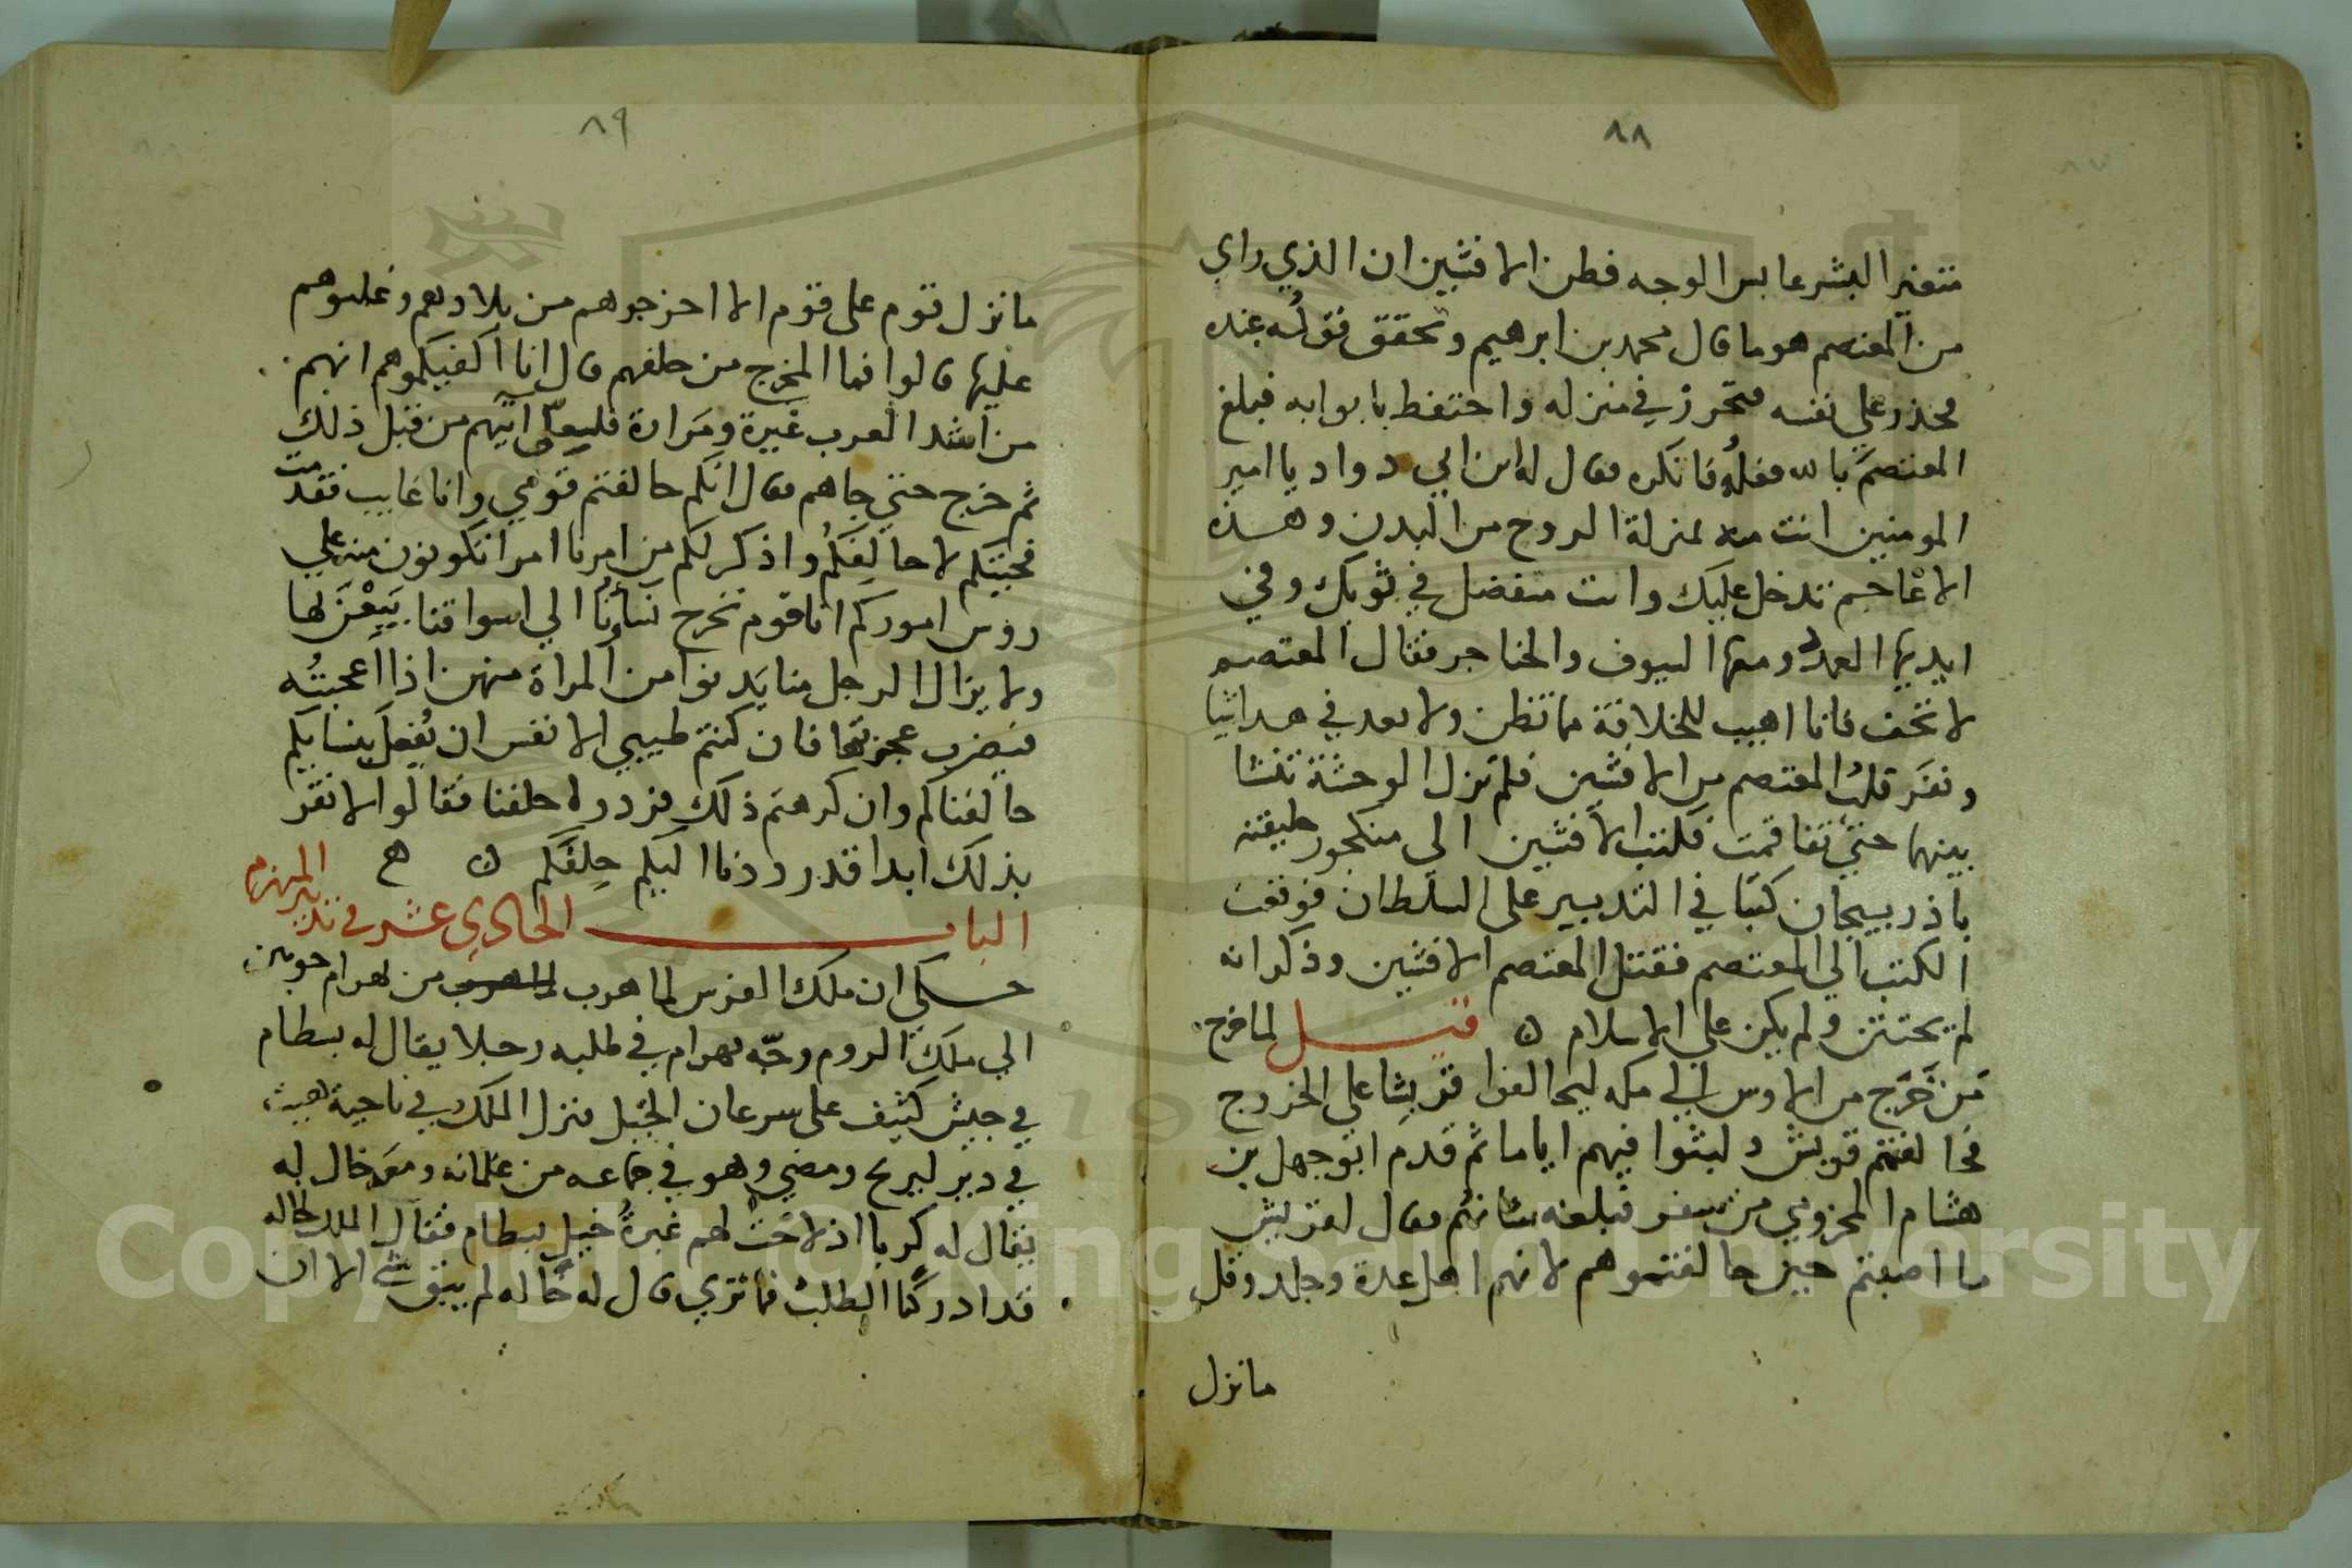 ٨٨
متغير البشر عابس الوجه فظن الافشين ان الذي راي
من المعتصم هو ما قال محمد بن ابرهيم وتحقق قوله عنده
فحذر على نفسه فتحرز في منزله واحتفظ بابوابه فبلغ
المعتصم بالله فعله فانكره فقال له ابن ابي دواد يا امير
المومنين انت منه بمنزلة الروح من البدن وهذه
الاعاجم تدخل عليك وانت متفضل في ثوبك وفي
ايديها العمد ومعها السيوف والخناجر فقال المعتصم
لا تخف فانا اهيب للخلافة مما تظن ولا بعد في هذا شيا
ونفر قلب المعتصم من الافشين فلم تزل الوحشة تنشا
بينهما حتى تفاقمت فكتب الافشين الي منكجور خليفته
باذربيجان كتبا في التدبير على السلطان فوقعت
الكتب الي المعتصم فقتل المعتصم الافشين وذكر انه
لم يختتن ولم يكن على الاسلام ن قيل لما خرج
من خرج من الاوس الي مكه ليحالفوا قريشا على الخزرج
فحالفتهم قريش ولبثوا فيهم اياما ثم قدم ابو جهل بن
هشام المخزومي من سفر فبلغه شانهم فقال لقريش
ما اصبتم حين حالفتموهم لانهم اهل عدة وجلد وقل
ما نزل
٨٩
ما نزل قوم على قوم الا اخرجوهم من بلادهم وغلبوهم
عليها قالوا فما المخرج من حلفهم قال انا اكفيكموهم انهم
من اشد العرب غيرة ومرارة اتيهم من قبل ذلك
ثم خرج حتى جاهم فقال انكم حالفتم قومي وانا غايب فقدمت
فجيتكم لاحالفكم واذكر لكم من امرنا امرا تكونون منه على
روس اموركم انا قوم تخرج نساونا الي اسواقنا يبعن لها
ولا يزال الرجل منا يدنوا من المراة منهن اذا اعجبته
فيضرب عجيزتها فان كنتم طيبي الانفس ان يفعل بنسايكم
حالفناكم وان كرهتم ذلك فردوا حلفنا فقالوا لا نقر
بذلك ابدا قد رددنا اليكم حلفكم ن ه
الباب الحادي عشر في تدبير المنهزم
حكي ان ملك الفرس لما هرب من بهرام جوبين
الي ملك الروم وجه بهرام في طلبه رجلا يقال له بسطام
في جيش كثيف على سرعان الخيل فنزل الملك في ناحية هيت
في دير ليريح ومضي وهو في جماعه من غلمانه ومعه خال له
يقال له كريا اذ لاحت لهم غبرة خيل بسطام فقال الملك لخاله
قد ادركنا الطلب فما تري قال له خاله لم يبق شي الا ان
Copyright © King Saud University